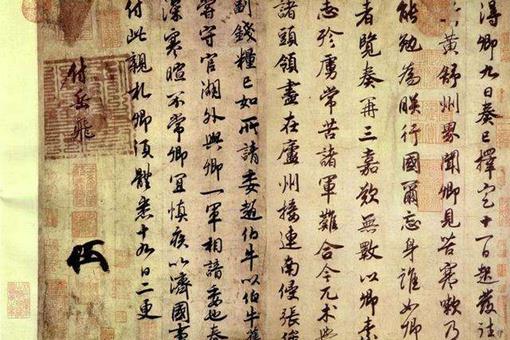 得卿九日奏已擇定十一日起發往
黃舒州界聞卿見苦寒嗽乃
能勉為朕行國爾忘身誰如卿
者覽奏再三嘉歎無斁以卿素
志殄虜常苦諸軍難合今兀朮
諸頭領盡在廬州接連南侵張俊
副錢糧已如所請委趙伯牛以伯牛舊
嘗守官湖外與卿一軍相諳委也春
深寒暄不常卿宜慎疾以濟國事
付此親札卿須體悉十九日二更
付岳飛